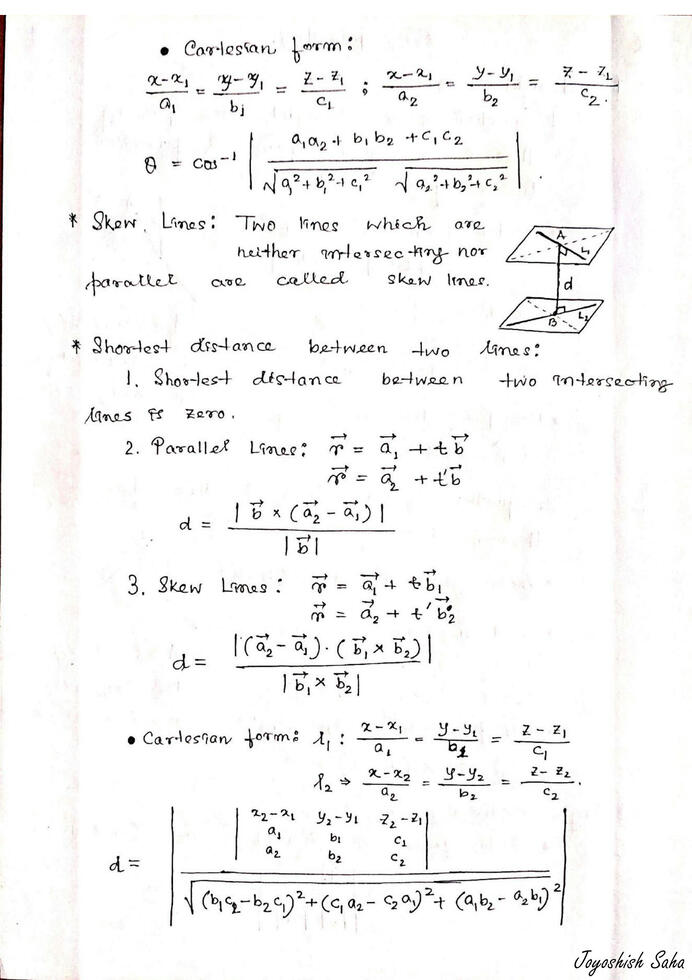 • Cartesian form:
(x-x₁)/a₁ = (y-y₁)/b₁ = (z-z₁)/c₁ ; (x-x₁)/a₂ = (y-y₁)/b₂ = (z-z₁)/c₂.
θ = cos⁻¹ | (a₁a₂ + b₁b₂ + c₁c₂) / (√(a₁²+b₁²+c₁²) √(a₂²+b₂²+c₂²)) | .
* Skew Lines: Two lines which are
neither intersecting nor
parallel are called skew lines.
A
L₁
d
B
L₂
* Shortest distance between two lines:
1. Shortest distance between two intersecting
lines is zero.
2. Parallel Lines: r⃗ = a⃗₁ + t b⃗
r⃗ = a⃗₂ + t'b⃗
d = | b⃗ × (a⃗₂ - a⃗₁) | / | b⃗ |
3. Skew Lines: r⃗ = a⃗₁ + t b⃗₁
r⃗ = a⃗₂ + t' b⃗₂
d = |(a⃗₂ - a⃗₁) · (b⃗₁ × b⃗₂)| / |b⃗₁ × b⃗₂|
• Cartesian form: l₁ : (x-x₁)/a₁ = (y-y₁)/b₁ = (z-z₁)/c₁
l₂ ⇒ (x-x₂)/a₂ = (y-y₂)/b₂ = (z-z₂)/c₂.
x₂-x₁ y₂-y₁ z₂-z₁
a₁ b₁ c₁
a₂ b₂ c₂
d =
√((b₁c₂-b₂c₁)²+(c₁a₂-c₂a₁)²+(a₁b₂-a₂b₁)²)
Joyoshish Saha